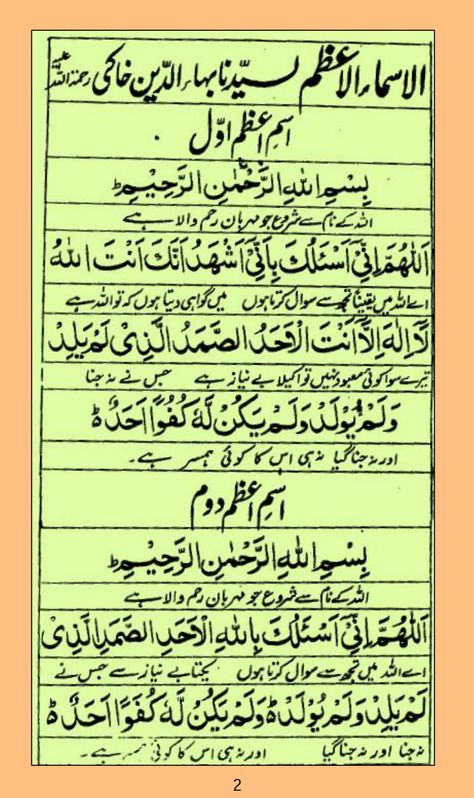 الاسماء الاعظم لسیدنا بہاء الدین خاکی رحمۃ اللہ علیہ
اسمِ اعظم اوّل
بِسْمِ اللهِ الرَّحْمٰنِ الرَّحِيْمِ ط
اللہ کے نام سے شروع جو مہربان رحم والا ہے
اَللّٰهُمَّ اِنِّيْ اَسْئَلُكَ بِاَنِّيْ اَشْهَدُ اَنَّكَ اَنْتَ اللهُ
اے اللہ میں یقیناً تجھ سے سوال کرتا ہوں میں گواہی دیتا ہوں کہ تو اللہ ہے
لَآ اِلٰهَ اِلَّا اَنْتَ الْاَحَدُ الصَّمَدُ الَّذِيْ لَمْ يَلِدْ
تیرے سوا کوئی معبود نہیں تو اکیلا بے نیاز ہے جس نے نہ جنا
وَلَمْ يُوْلَدْ وَلَمْ يَكُنْ لَّهٗ كُفُوًا اَحَدٌ ط
اور نہ جنا گیا نہ ہی اس کا کوئی ہمسر ہے۔
اسمِ اعظم دوم
بِسْمِ اللهِ الرَّحْمٰنِ الرَّحِيْمِ ط
اللہ کے نام سے شروع جو مہربان رحم والا ہے
اَللّٰهُمَّ اِنِّيْ اَسْئَلُكَ بِاللهِ الْاَحَدِ الصَّمَدِ الَّذِيْ
اے اللہ میں تجھ سے سوال کرتا ہوں یکتا بے نیاز سے جس نے
لَمْ يَلِدْ وَلَمْ يُوْلَدْ ط وَلَمْ يَكُنْ لَّهٗ كُفُوًا اَحَدٌ ط
نہ جنا اور نہ جنا گیا اور نہ ہی اس کا کوئی ہمسر ہے۔
2